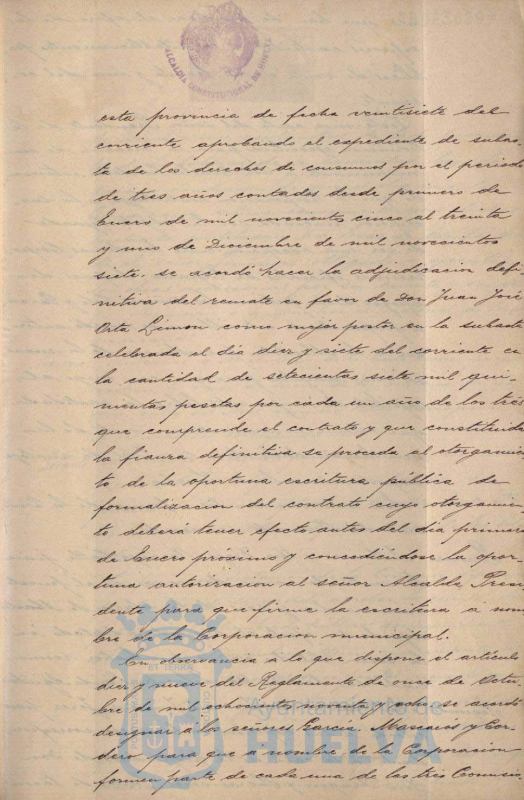 ALCALDIA CONSTITUCIONAL DE HUELVA
esta provincia de fecha veintisiete del
corriente aprobando el expediente de subas-
ta de los derechos de consumos por el periodo
de tres años contados desde primero de
Enero de mil novecientos cinco al treinta
y uno de Diciembre de mil novecientos
siete, se acordó hacer la adjudicacion defi-
nitiva del remate en favor de Don Juan José
Orta Limon como mejor postor en la subasta
celebrada el dia diez y siete del corriente en
la cantidad de setecientas siete mil qui-
nientas pesetas por cada un año de los tres
que comprende el contrato y que constituida
la fianza definitiva se proceda al otorgamien
to de la oportuna escritura pública de
formalizacion del contrato cuyo otorgamien-
to deberá tener efecto antes del dia primero
de Enero próximo y concediéndose la opor-
tuna autorizacion al señor Alcalde Presi
dente para que firme la escritura a nom-
bre de la Corporacion municipal.
En observancia a lo que dispone el articulo
diez y nueve del Reglamento de once de Octu-
bre de mil ochocientos noventa y ocho se acordó
designar a los señores Garcia, Mascarós y Cor-
dero para que a nombre de la Corporacion
formen parte de cada una de las tres Comisio-
Ayuntamiento de
HUELVA